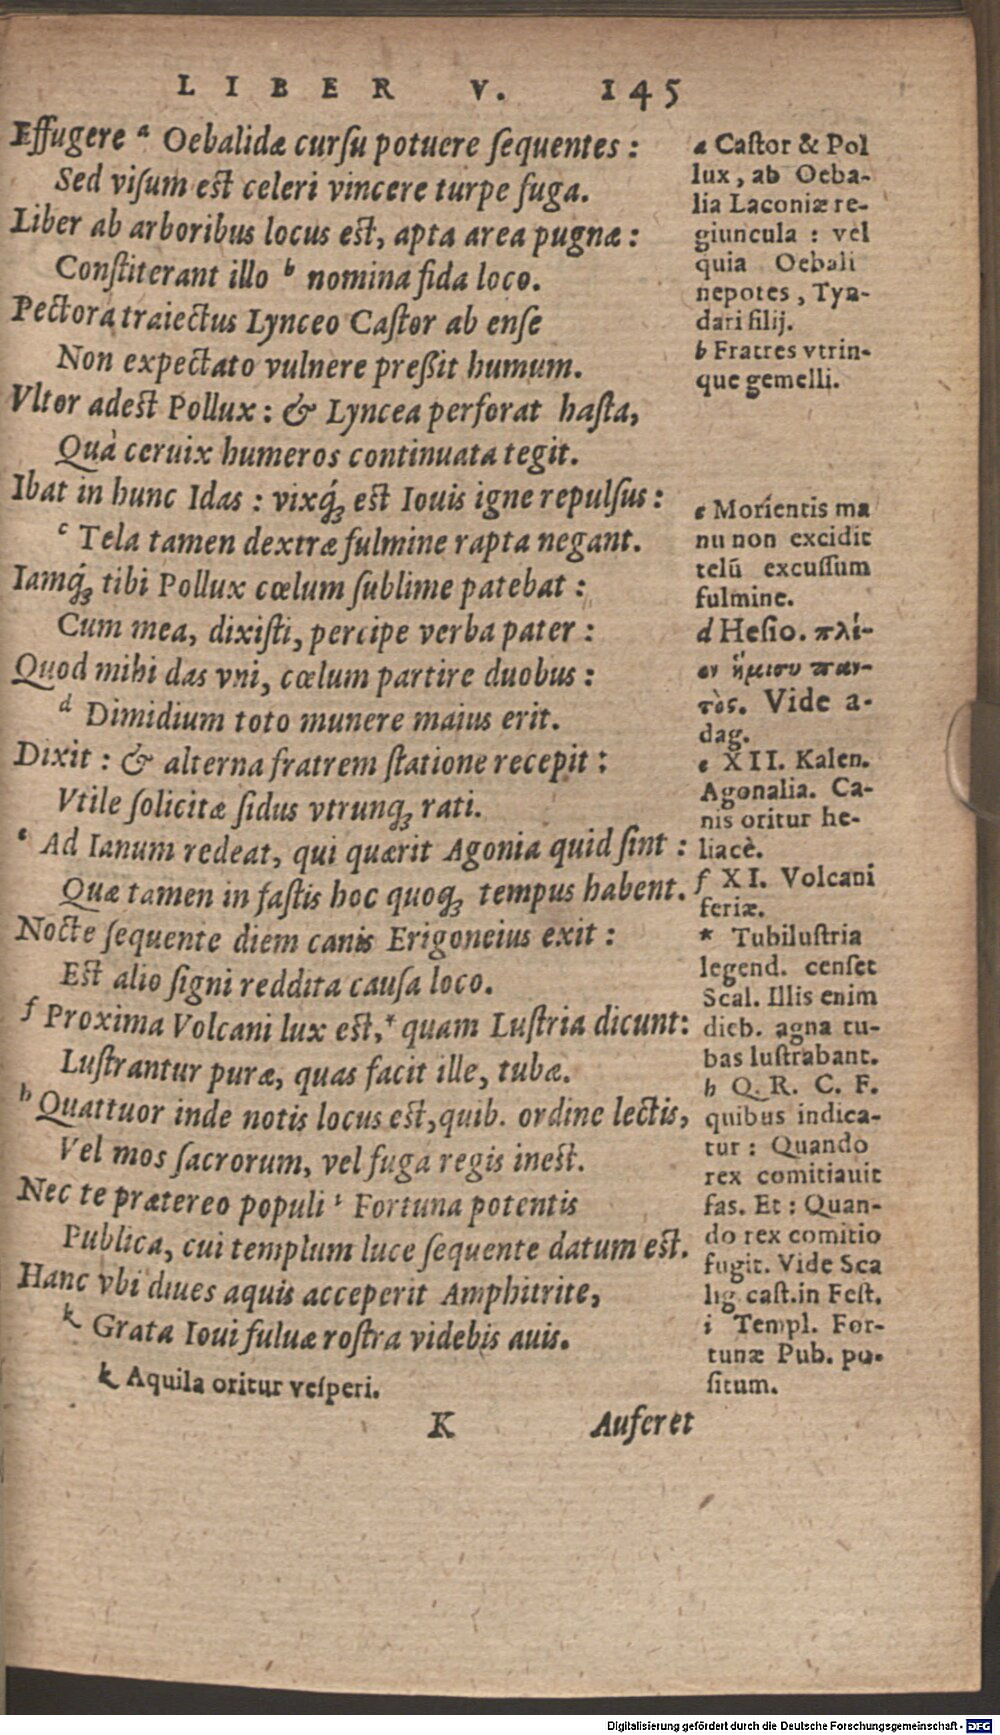 LIBER V. 145
Effugere ᵃ Oebalidæ cursu potuere ſequentes :
Sed viſum est celeri vincere turpe fuga.
Liber ab arboribus locus est, apta area pugnæ :
Conſtiterant illo ᵇ nomina fida loco.
Pectora traiectus Lynceo Caſtor ab enſe
Non expectato vulnere preſſit humum.
Vltor adest Pollux : & Lyncea perforat haſta,
Quà ceruix humeros continuata tegit.
Ibat in hunc Idas : vixq́ꝫ est Iouis igne repulſus :
ᶜ Tela tamen dextræ fulmine rapta negant.
Iamq́ꝫ tibi Pollux cœlum ſublime patebat :
Cum mea, dixiſti, percipe verba pater :
Quod mihi das vni, cœlum partire duobus :
ᵈ Dimidium toto munere maius erit.
Dixit : & alterna fratrem ſtatione recepit :
Vtile ſolicitæ ſidus vtrunqꝫ rati.
ᵉ Ad Ianum redeat, qui quærit Agonia quid ſint :
Quæ tamen in faſtis hoc quoqꝫ tempus habent.
Nocte ſequente diem canis Erigoneius exit :
Est alio ſigni reddita cauſa loco.
ᶠ Proxima Volcani lux est,* quam Luſtria dicunt:
Luſtrantur puræ, quas facit ille, tubæ.
ʰ Quattuor inde notis locus est, quib. ordine lectis,
Vel mos ſacrorum, vel fuga regis inest.
Nec te prætereo populi ⁱ Fortuna potentis
Publica, cui templum luce ſequente datum est.
Hanc vbi diues aquis acceperit Amphitrite,
ᵏ Grata Ioui fuluæ roſtra videbis auis.
k Aquila oritur veſperi.
a Caſtor & Pol
lux, ab Oeba-
lia Laconiæ re-
giuncula : vel
quia Oebali
nepotes, Tyn-
dari filij.
b Fratres vtrin-
que gemelli.
c Morientis ma
nu non excidit
telũ excuſſum
fulmine.
d Heſio. πλέ-
ον ἥμισυ παν-
τὸς. Vide a-
dag.
e XII. Kalen.
Agonalia. Ca-
nis oritur he-
liacè.
f XI. Volcani
feriæ.
* Tubiluſtria
legend. cenſet
Scal. Illis enim
dieb. agna tu-
bas luſtrabant.
h Q. R. C. F.
quibus indica-
tur : Quando
rex comitiauit
fas. Et : Quan-
do rex comitio
fugit. Vide Sca
lig. caſt. in Feſt.
i Templ. For-
tunæ Pub. po-
ſitum.
K Auferet
Digitalisierung gefördert durch die Deutsche Forschungsgemeinschaft - DFG